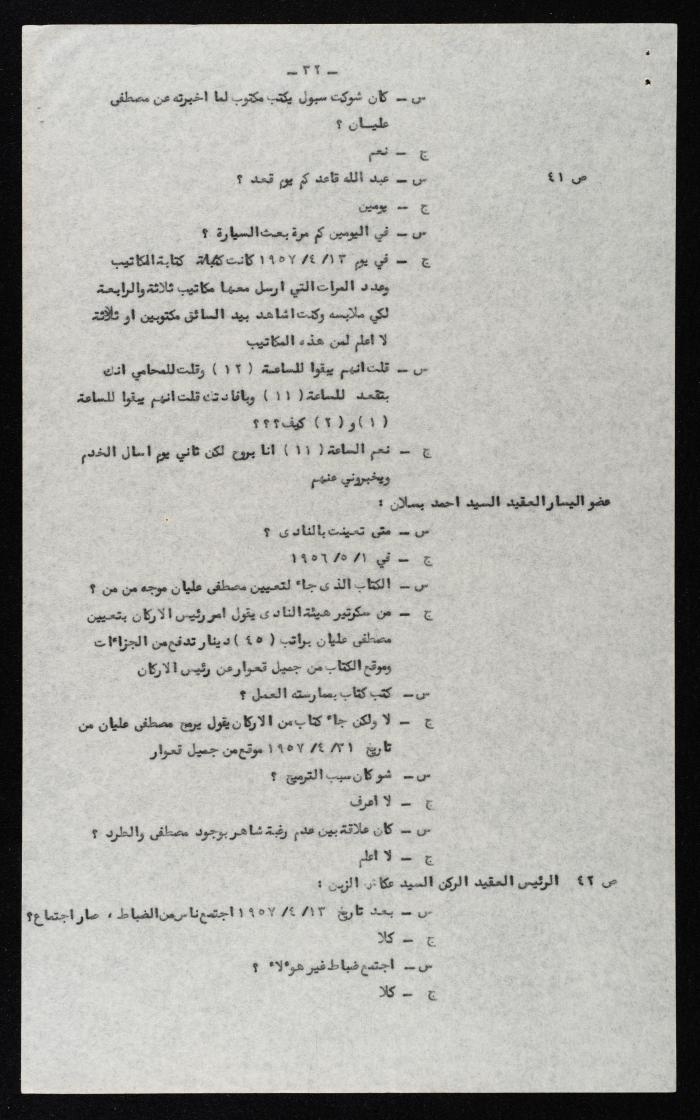 – ٣٢ –
س – كان شوكت سبول يكتب مكتوب لما اخبرته عن مصطفى
عليان ؟
ج – نعم
ص ٤١ س – عبد الله قاعد كم يوم قعد ؟
ج – يومين
س – في اليومين كم مرة بعث السيارة ؟
ج – في يوم ١٣/ ٤/ ١٩٥٧ كانت كتابة المكاتيب
وعدد المرات التي ارسل معها مكاتيب ثلاثة والرابعة
لكي ملابسه وكنت اشاهد بيد السائق مكتوبين او ثلاثة
لا اعلم لمن هذه المكاتيب
س – قلت انهم يبقوا للساعة ( ١٢ ) وقلت للمحامي انك
بتقعد للساعة ( ١١ ) وبافادتك قلت انهم يبقوا للساعة
( ١ ) و ( ٢ ) كيف ؟؟؟
ج – نعم الساعة ( ١١ ) انا بروح لكن ثاني يوم اسال الخدم
ويخبروني عنهم
عضو اليسار العقيد السيد احمد بسلان :
س – متى تعينت بالنادى ؟
ج – في ١/ ٥/ ١٩٥٦
س – الكتاب الذى جاء لتعيين مصطفى عليان موجه من من ؟
ج – من سكرتير هيئة النادى يقول امر رئيس الاركان بتعيين
مصطفى عليان براتب ( ٤٥ ) دينار تدفع من الجزاءات
وموقع الكتاب من جميل قعوار عن رئيس الاركان
س – كتب كتاب بممارسته العمل ؟
ج – لا ولكن جاء كتاب من الاركان يقول يرمج مصطفى عليان من
تاريخ ٣١/ ٤/ ١٩٥٧ موقع من جميل قعوار
س – شو كان سبب الترميج ؟
ج – لا اعرف
س – كان علاقة بين عدم رغبة شاهر بوجود مصطفى والطرد ؟
ج – لا اعلم
ص ٤٢ الرئيس العقيد الركن السيد عكاش الزبن :
س – بعد تاريخ ١٣/ ٤/ ١٩٥٧ اجتمع ناس من الضباط ، صار اجتماع؟
ج – كلا
س – اجتمع ضباط غير هوءلاء ؟
ج – كلا